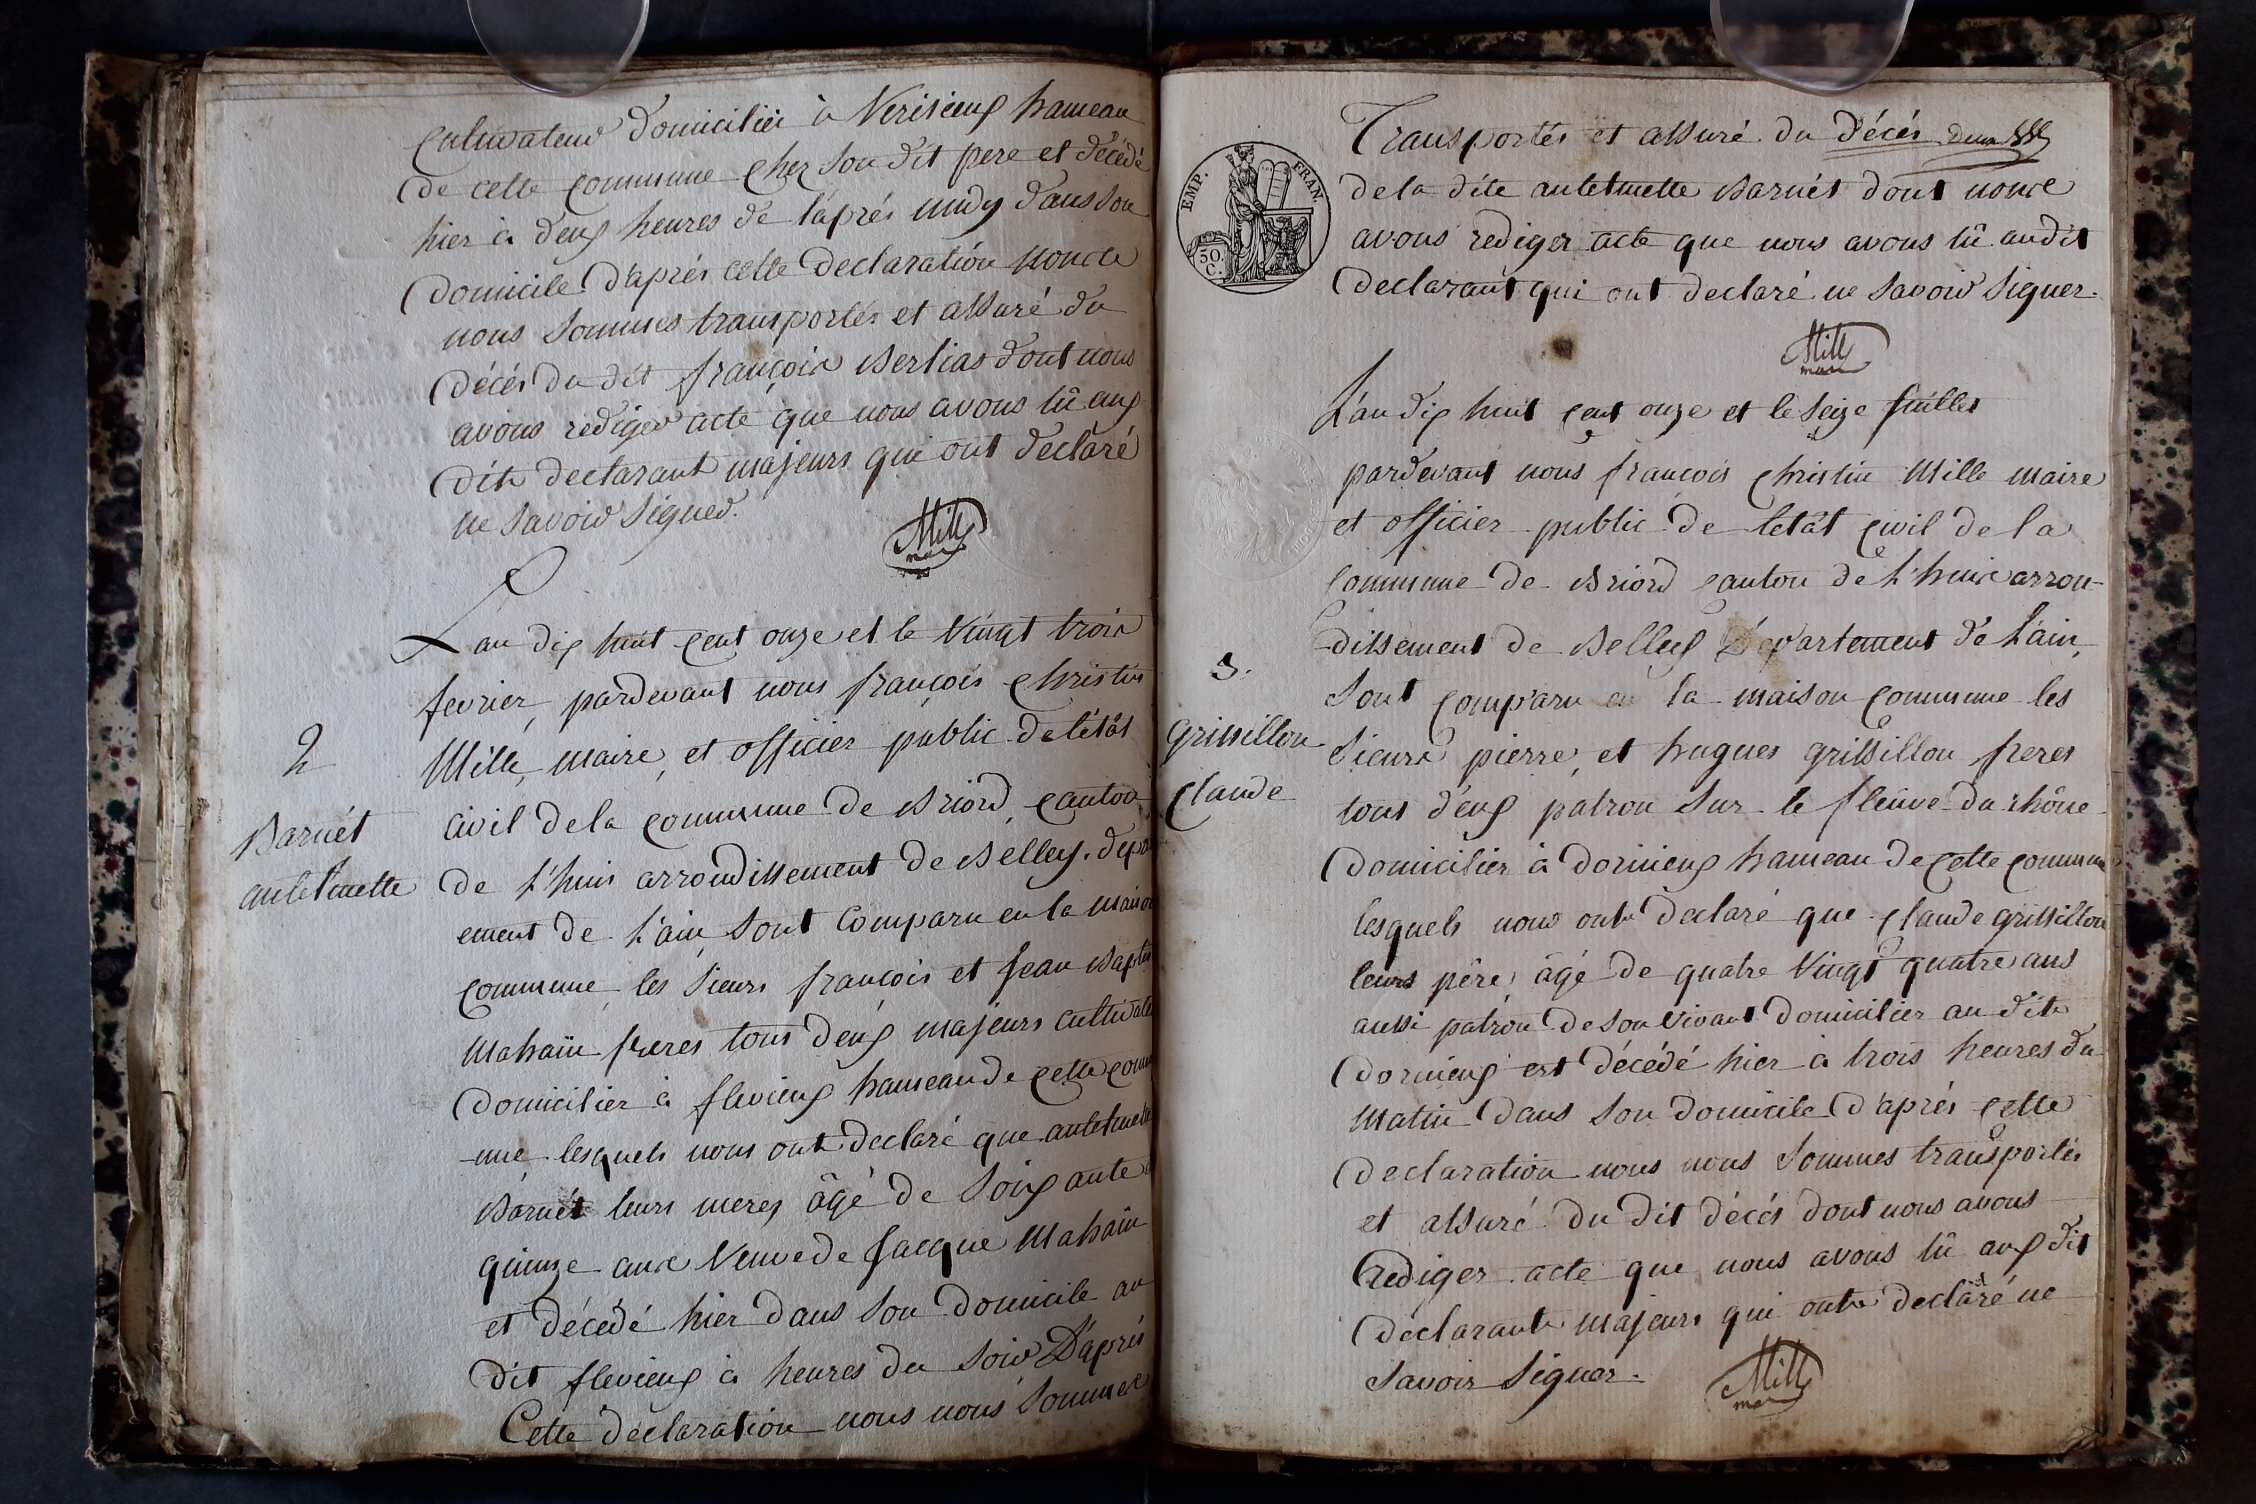 cultivateur domicilié à Verisieux hameau
de cette commune chez son dit pere et décédé
hier à deux heures de l'après midy dans son
domicile d'après cette declaration nous
nous sommes transportés et assuré du
décés du dit françois Berlias dont nous
avons rediger acte que nous avons lû aux
dits declarant majeurs qui ont declaré
ne savoir signer.
Mille
maire
2
Barnét
antelmette
L'an dix huit cent onze et le vingt trois
fevrier, pardevant nous françois christin
Mille, maire, et officier public de létât
civil de la commune de Briord, canton
de L'huis arrondissement de Belley. depar
ement de L'ain sont comparu en la maison
commune les sieurs françois et Jean Baptis
Mahaïn freres tous deux majeurs cultivate
domicilier à flevieux hameau de cette comm
-une lesquels nous ont declaré que antelmette
Barnét leurs meres âgé de soixante
quinze ans veuve de Jacque Mahaïn
et décédé hier dans son domicile au
dit flevieux à heures du soir D'après
Cette declaration nous nous sommes
EMP. FRAN.
30.
C.
Transportés et assuré du décés
de la dite antelmette Barnét dont nous
avons rediger acte que nous avons lû audit
declarant qui ont declaré ne savoir signer.
Mille
maire
3.
Grissillon
Claude
L'an dix huit cent onze et le seize Juillet
pardevant nous françois christin Mille maire
et officier public de letât civil de la
commune de Briord canton de L'huis arron-
-dissement de Belley Département de L'ain,
sont comparu en la maison commune les
sieurs pierre, et hugues grissillon freres
tous deux patron sur le fleûve du rhône
domicilier à dorinieux hameau de cette commune
lesquels nous ont declaré que claude grissillon
leurs père, âgé de quatre vingt quatre ans
aussi patron de son vivant domicilier au dit
dorinieux est décédé hier à trois heures du
matin dans son domicile d'après cette
declaration nous nous sommes transportés
et assuré du dit décés dont nous avons
rediger acte que nous avons lû aux dit
declarants majeurs qui ont declaré ne
savoir signer.
Mille
maire